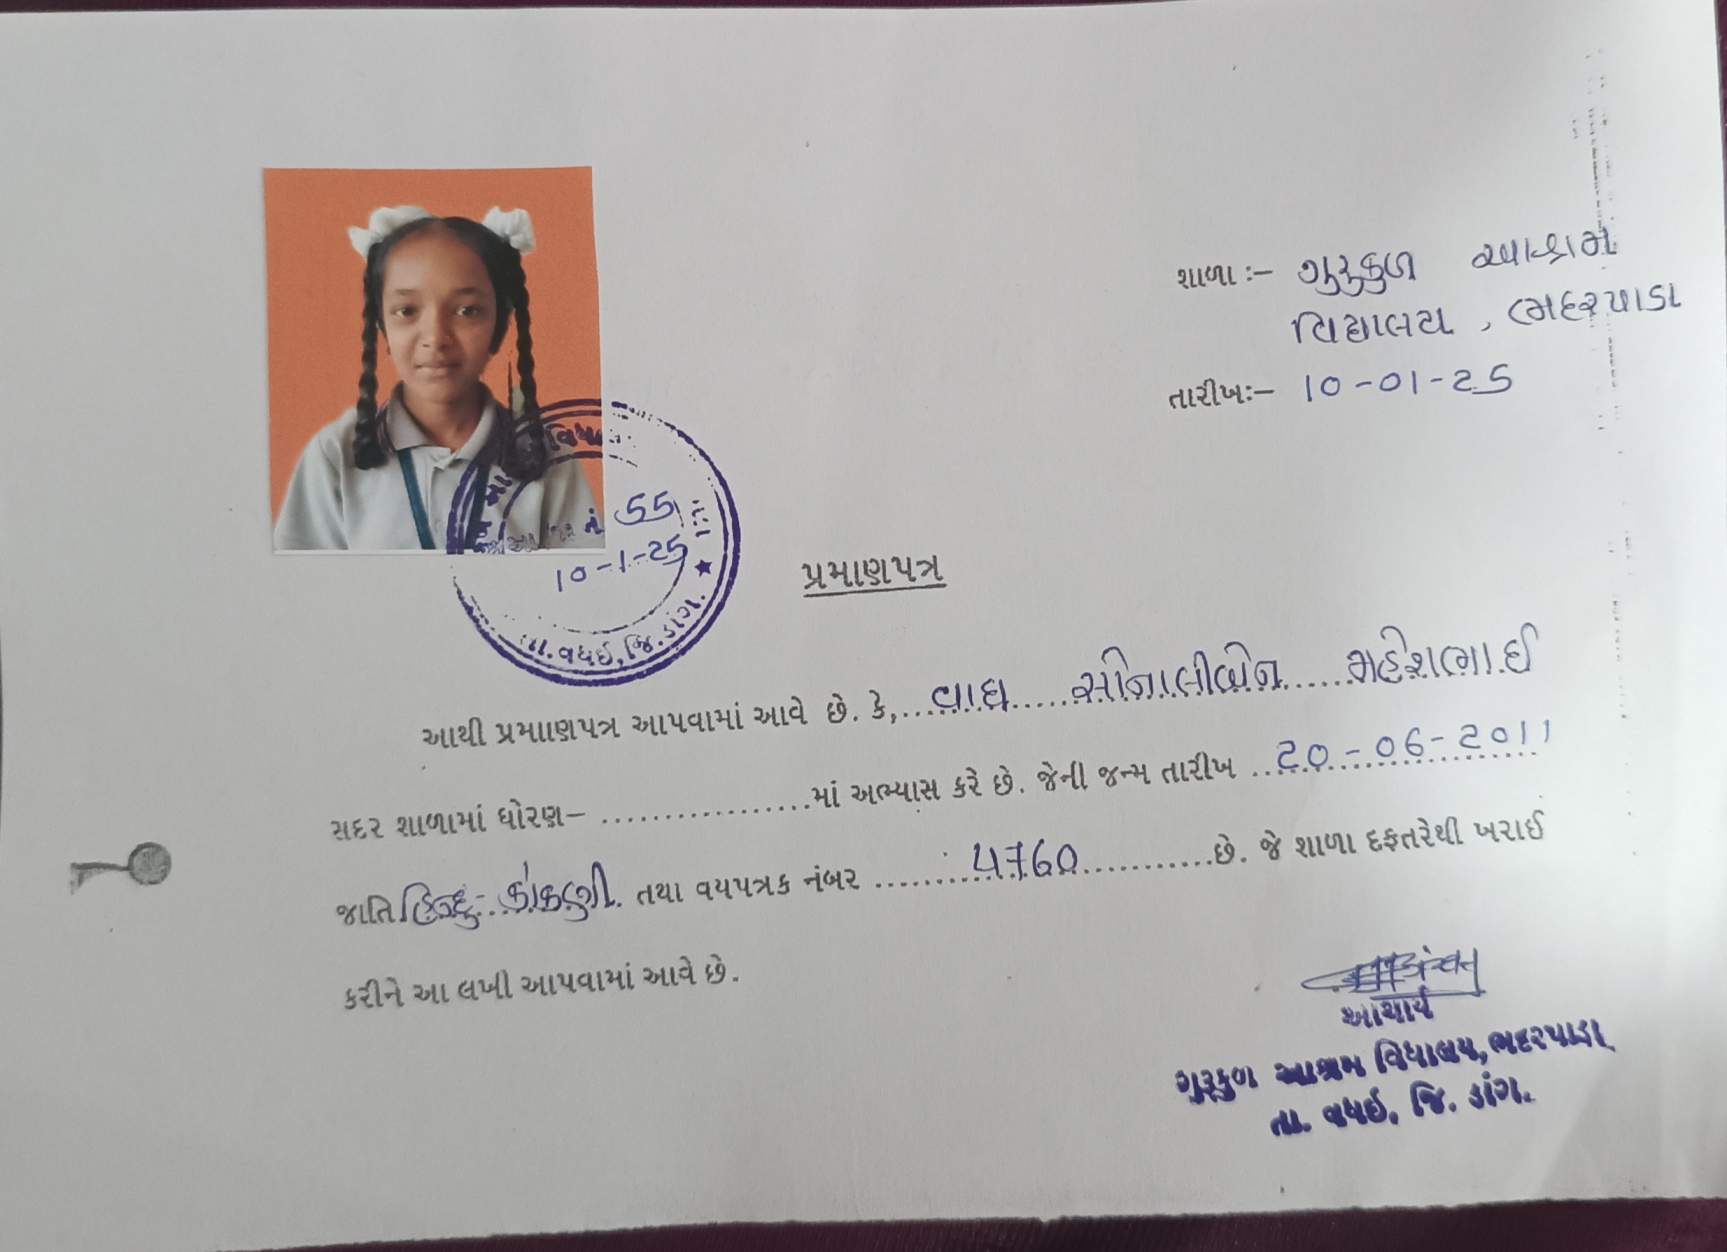 શાળા :- ગુરુકુળ આશ્રમ
વિદ્યાલય , ભદરપાડા
તારીખઃ- 10-01-25
નં 55
10-1-25
તા. વઘઈ, જિ. ડાંગ. ★
પ્રમાણપત્ર
આથી પ્રમાાણપત્ર આપવામાં આવે છે. કે,..વાઘ.....સોનાલીબેન......મહેશભાઈ
સદર શાળામાં ધોરણ– ................માં અભ્યાસ કરે છે. જેની જન્મ તારીખ ..20-06-2011
જાતિ હિન્દુ-કોકણી. તથા વયપત્રક નંબર ........4760..........છે. જે શાળા દફતરેથી ખરાઈ
કરીને આ લખી આપવામાં આવે છે.
આચાર્ય
ગુરૂકુળ આશ્રમ વિધાલય, ભદરપાડા
તા. વઘઇ, જિ. ડાંગ.